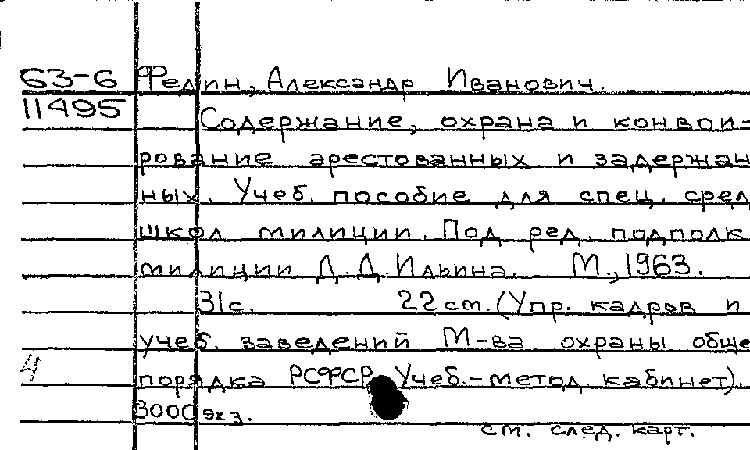 63-6 Федин, Александр Иванович.
11495 Содержание, охрана и конвои-
рование арестованных и задержан
ных. Учеб. пособие для спец. сред
школ милиции. Под ред. подполк
милиции Д. Д. Ильина. М., 1963.
31с. 22 см. (Упр. кадров и
учеб. заведений М-ва охраны обще
4 порядка РСФСР. Учеб.-метод. кабинет).
3000 экз.
см. след. карт.